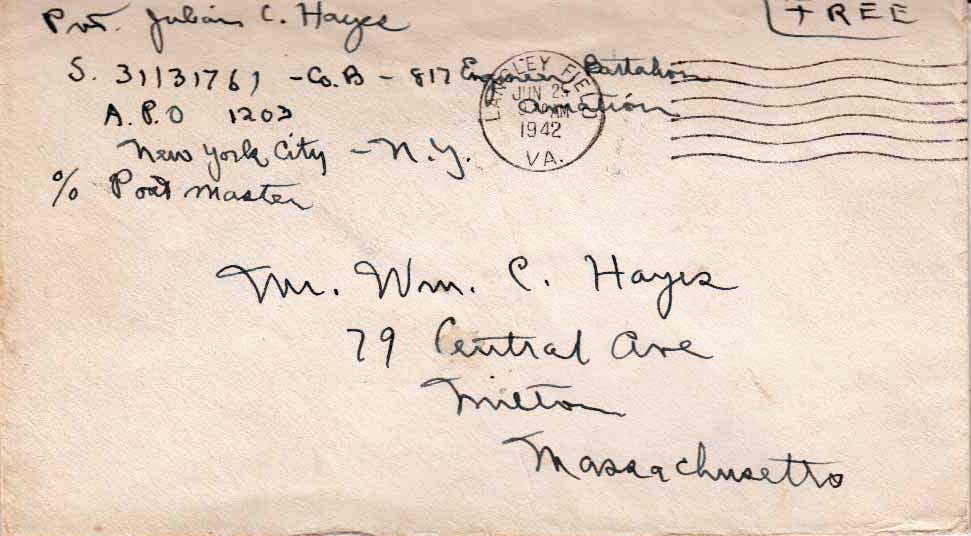 Pvt. Julian C. Hayes
FREE
S. 31131761 - Co. B - 817 Engineer Battalion
Aviation
A.P.O 1203
New York City - N.Y.
% Post Master
LANGLEY FIELD
JUN 25
AM
1942
VA.
Mr. Wm. C. Hayes
79 Central Ave
Milton
Massachusetts